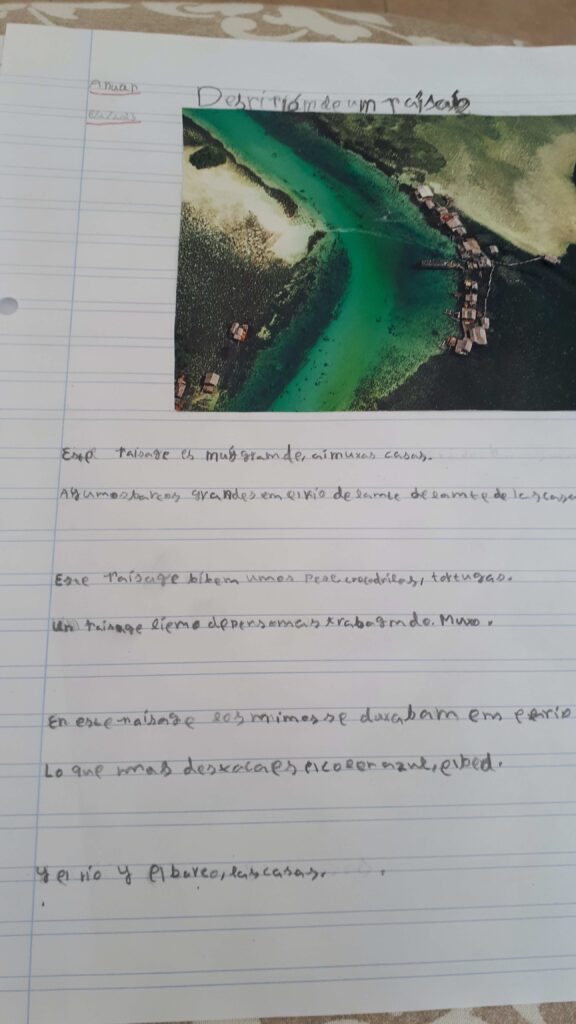 Anuar
Descririemdo um raisage
Este raisage es muy gramde, ai muxas casas.
Algumos barcos grandes em el rio delamte delamte de las casa
Este raisage bibem umos pese, crocodrilos, tortugas.
Un raisage llemo de persomas trabagmdo. Muxo.
En este raisage los mimos se duxabam em el rio
Lo que mas desxaca es el coler azul, el bed.
y el rio y el barco, las casas.